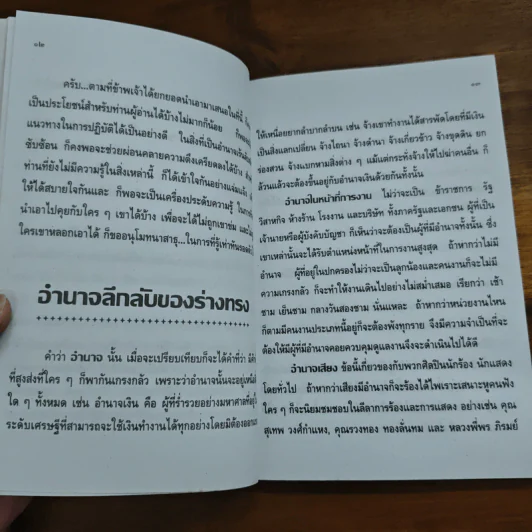 ๑๒
ครับ...ตามที่ข้าพเจ้าได้ยกยอดนำเอามาเสนอในคัมภีร์
เป็นประโยชน์สำหรับท่านผู้อ่านได้บ้างไม่มากก็น้อย
แนวทางในการปฏิบัติได้เป็นอย่างดี ในสิ่งที่เป็นอำนาจเร้นลับ
ซับซ้อน ก็คงพอจะช่วยผ่อนคลายความตึงเครียดลงได้บ้าง
ท่านที่ยังไม่มีความรู้ในสิ่งเหล่านี้ ก็ได้เข้าใจกันอย่างแจ่มแจ้ง
ให้ได้สบายใจกันและ ก็พอจะเป็นเครื่องประดับความรู้ ในการ
นำเอาไปคุยกับใคร ๆ เขาได้บ้าง เพื่อจะได้ไม่ถูกเขาข่ม และ
ใครเขาหลอกเอาได้ ก็ขออนุโมทนาสาธุ...ในการที่รู้เท่ากัน
อำนาจลึกลับของร่างทรง
คำว่า อำนาจ นั้น เมื่อจะเปรียบเทียบก็จะได้คำที่ว่า
ที่สูงส่งที่ใคร ๆ ก็พากันเกรงกลัว เพราะว่าอำนาจนั้นจะอยู่เหนือ
ใด ๆ ทั้งหมด เช่น อำนาจเงิน คือ ผู้ที่ร่ำรวยอย่างมหาศาล
ระดับเศรษฐีที่สามารถจะใช้เงินทำงานได้ทุกอย่างโดยมิต้องออก
๑๓
ให้เหนื่อยยากลำบากลำบน เช่น จ้างเขาทำงานได้สารพัดโดยที่มีเงิน
เป็นสิ่งแลกเปลี่ยน จ้างไถนา จ้างดำนา จ้างเกี่ยวข้าว จ้างขุดดิน ยก
ร่องสวน จ้างแบกหามสิ่งต่าง ๆ แม้แต่กระทั่งจ้างให้ไปฆ่าคนอื่น ก็
ล้วนแล้วจะต้องขึ้นอยู่กับอำนาจเงินด้วยกันทั้งนั้น
อำนาจในหน้าที่การงาน ไม่ว่าจะเป็น ข้าราชการ รัฐ
วิสาหกิจ ห้างร้าน โรงงาน และบริษัท ทั้งภาครัฐและเอกชน ผู้ที่เป็น
เจ้านายหรือผู้บังคับบัญชา ก็เห็นว่าจะต้องเป็นผู้ที่มีอำนาจทั้งนั้น ซึ่ง
เขาเหล่านั้นจะได้รับตำแหน่งหน้าที่ในการงานสูงสุด ถ้าหากว่าไม่มี
อำนาจ ผู้ที่อยู่ในปกครองไม่ว่าจะเป็นลูกน้องและคนงานก็จะไม่มี
ความเกรงกลัว ก็จะทำให้งานเดินไปอย่างไม่สม่ำเสมอ เรียกว่า เช้า
ชาม เย็นชาม กลางวันสองชาม นั่นแหละ ถ้าหากว่าหน่วยงานไหน
ก็ตามมีคนงานประเภทนี้อยู่ก็จะต้องพังทุกราย จึงมีความจำเป็นที่จะ
ต้องให้มีผู้ที่มีอำนาจคอยควบคุมดูแลงานจึงจะดำเนินไปได้ดี
อำนาจเสียง ข้อนี้เกี่ยวของกับพวกศิลปินนักร้อง นักแสดง
โดยทั่วไป ถ้าหากว่าเสียงมีอำนาจก็จะร้องได้ไพเราะเสนาะหูคนฟัง
ใคร ๆ ก็จะนิยมชมชอบในลีลาการร้องและการแสดง อย่างเช่น คุณ
สุเทพ วงศ์กำแหง, คุณรวงทอง ทองลั่นทม และ หลวงพี่พร ภิรมย์